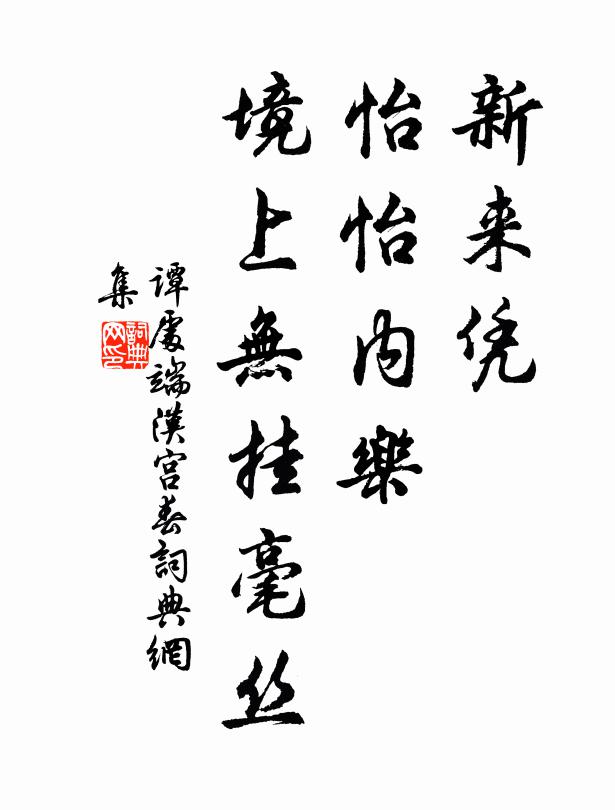 新来凭
怡怡内樂
境上無挂毫丝
谭處端漢宫春詞典網
集
詞典
网印